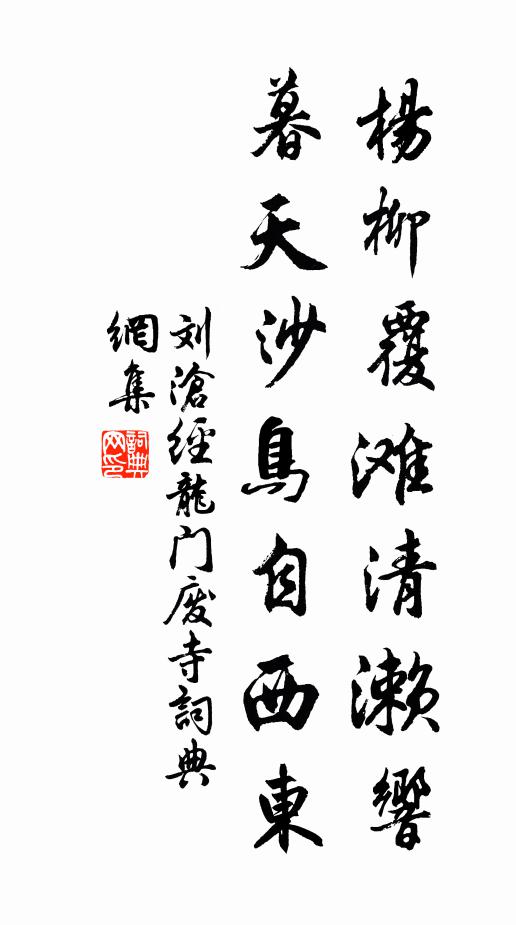 楊柳覆滩清瀨響
暮天沙鳥自西東
刘滄經龍门废寺詞典
網集
詞典網印